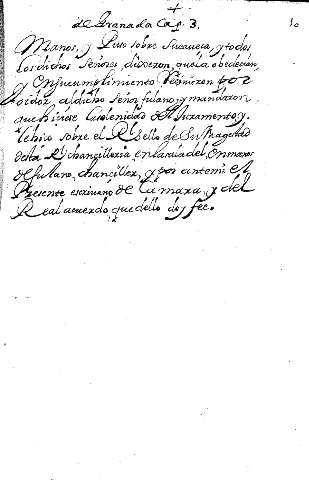 de Granada Cap. 3.
10
Manos, y Puso sobre su caveza, y todos
los dichos Señores, dixeron, que la obedecian,
y en su cumplimiento Recivieron por
oidor, al dicho Señor fulano, y mandaron
que hiciese la solenidad del Juramento, y
lo hiço sobre el Rl sello de Su Magestad
desta Rl chancilleria en la sala del en manos
de fulano, chanciller, y por ante mi el
Presente escrivano de camara, y del
Real acuerdo que dello doy fee.